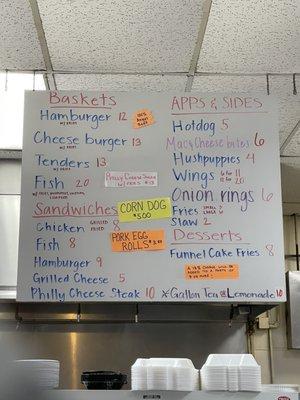 Baskets
Hamburger 12
w/ FRIES
100% Angus Beef
Cheese burger 13
w/ FRIES
Tenders 13
w/ FRIES
Philly Cheese Steak
w/ FRIES $13
Fish 20
Sandwiches
CORN DOG
$5.00
Chicken GRILLED 9
FRIED 8
Fish 8
PORK EGG
ROLLS $3.00
Hamburger 9
Grilled Cheese 5
Philly Cheese Steak 10
APPS & SIDES
Hotdog 5
Mac & Cheese bites 6
Hushpuppies 4
Wings 6 for 11
12 for 20
Onion rings 6
Fries SMALL 3
LARGE 6
Slaw 2
Desserts
Funnel Cake Fries 8
A 18% CHARGE WILL BE
ADDED TO A PARTY OF
* Gallon Tea or Lemonade 10